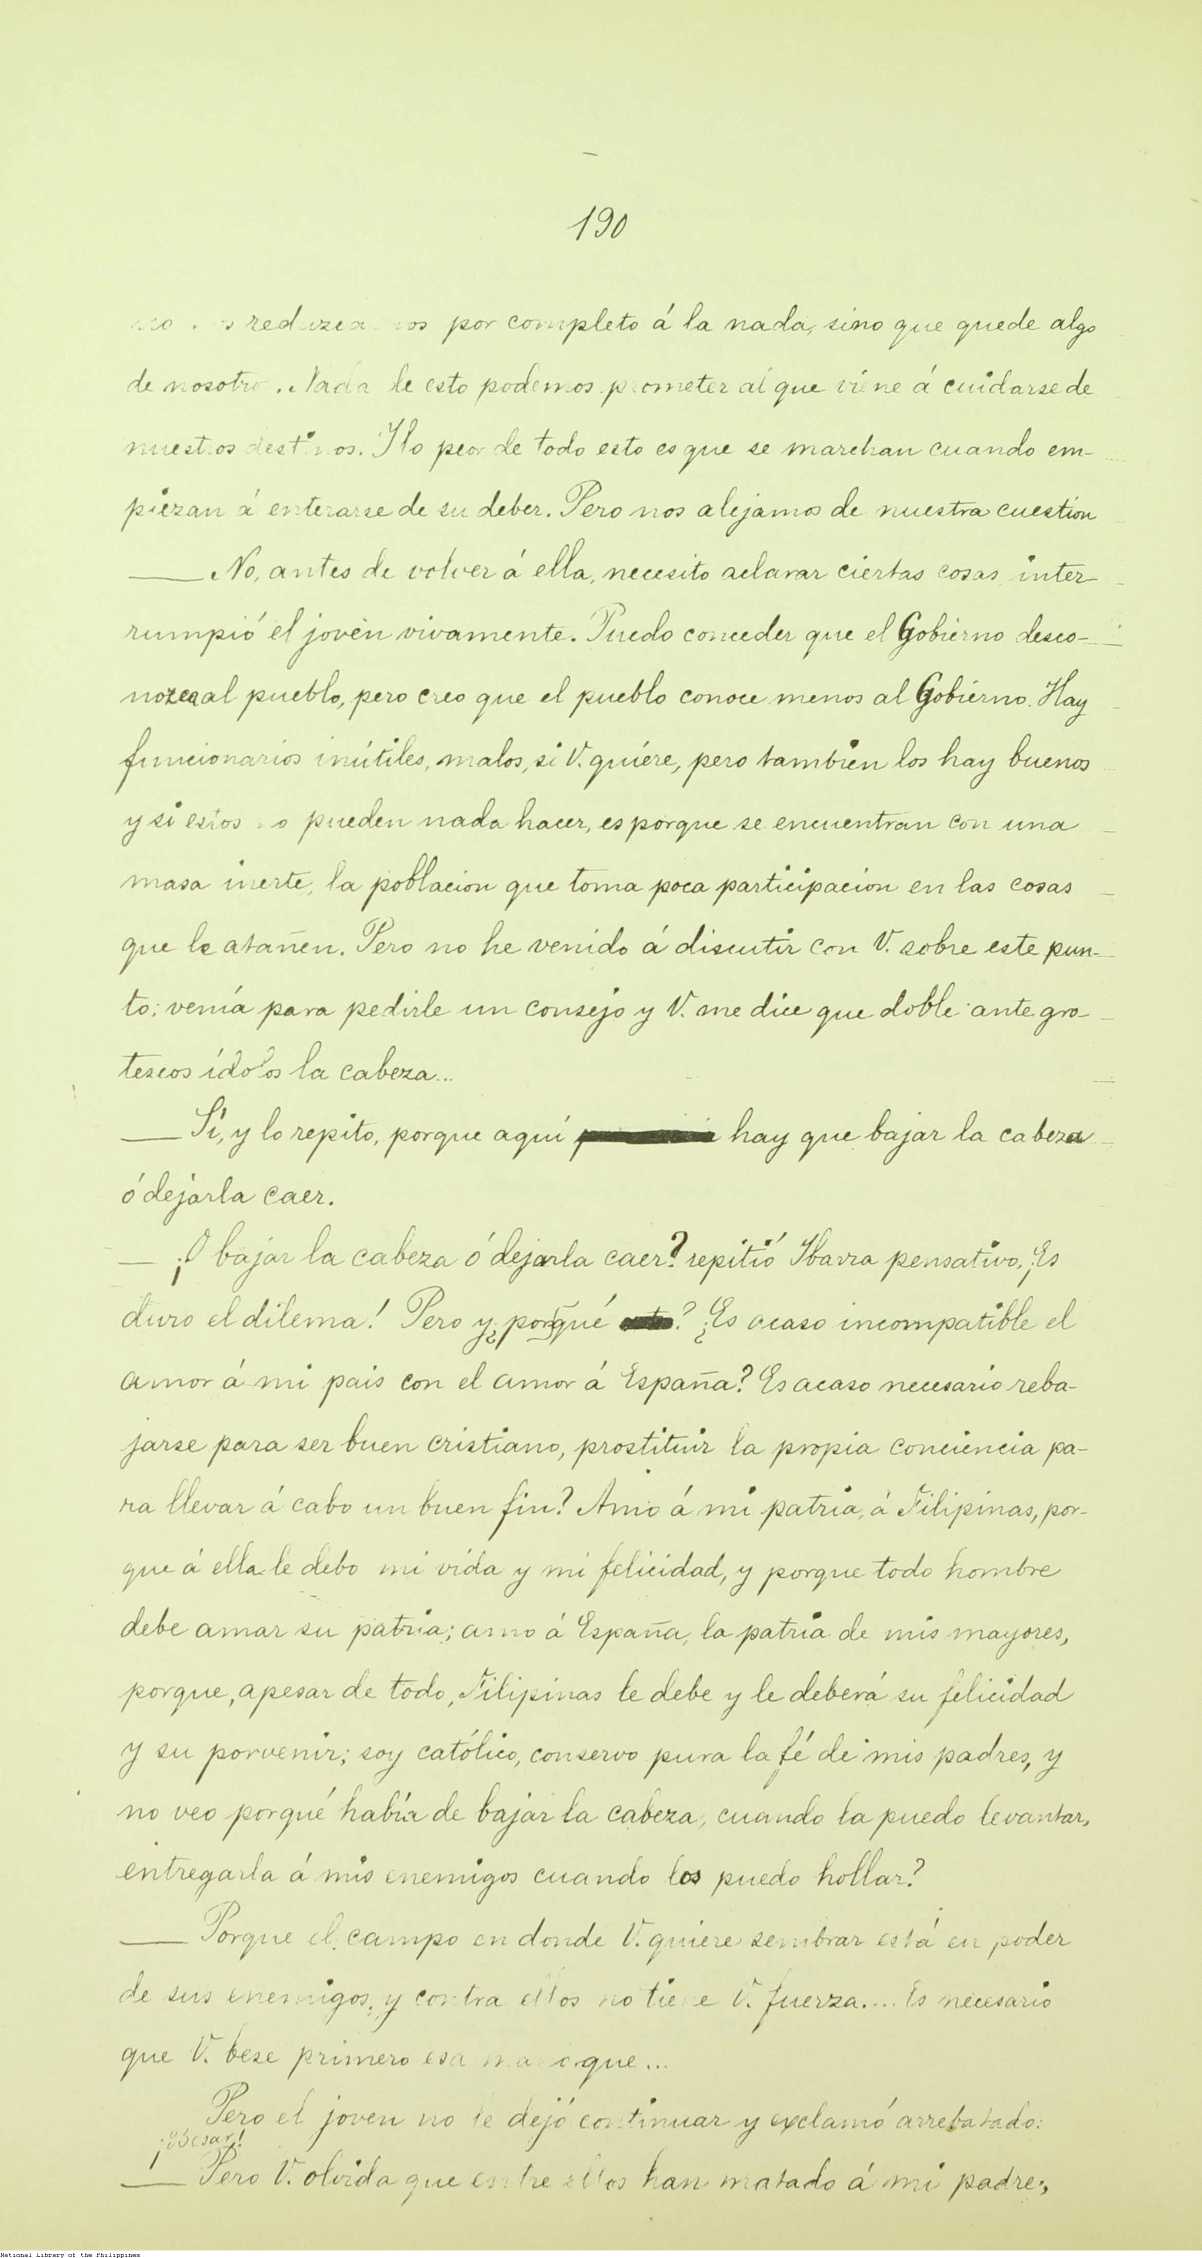 190
por completo á la nada, sino que quede algo
de nosotro . Nada de esto podemos prometer al que viene á cuidarse de
nuestros destinos. Y lo peor de todo esto es que se marchan cuando em-
piezan á enterarse de su deber. Pero nos alejamos de nuestra cuestion
— No, antes de volver á ella, necesito aclarar ciertas cosas inter-
rumpió el joven vivamente. Puedo conceder que el Gobierno desco-
nozca al pueblo, pero creo que el pueblo conoce menos al Gobierno. Hay
funcionarios inútiles, malos, si V. quiere, pero tambien los hay buenos
y si estos no pueden nada hacer, es porque se encuentran con una
masa inerte, la poblacion que toma poca participacion en las cosas
que le atañen. Pero no he venido á discutir con V. sobre este pun-
to; venía para pedirle un consejo y V. me dice que doble ante gro-
tescos ídolos la cabeza...
— Sí, y lo repito, porque aquí hay que bajar la cabeza
ó dejarla caer.
— ¡O bajar la cabeza ó dejarla caer? repitió Ibarra pensativo, ¡Es
duro el dilema! Pero y ¿porqué ? ¿Es acaso incompatible el
amor á mi pais con el amor á España? Es acaso necesario reba-
jarse para ser buen cristiano, prostituir la propia conciencia pa-
ra llevar á cabo un buen fin? Amo á mi patria, á Filipinas, por-
que á ella le debo mi vida y mi felicidad, y porque todo hombre
debe amar su patria; amo á España, la patria de mis mayores,
porque, apesar de todo, Filipinas le debe y le deberá su felicidad
y su porvenir; soy católico, conservo pura la fé de mis padres, y
no veo porqué había de bajar la cabeza, cuando la puedo levantar,
entregarla á mis enemigos cuando los puedo hollar?
— Porque el campo en donde V. quiere sembrar está en poder
de sus enemigos, y contra ellos no tiene V. fuerza.... Es necesario
que V. bese primero esa mano que...
Pero el joven no le dejó continuar y exclamó arrebatado:
¡Besar!
— Pero V. olvida que entre ellos han matado á mi padre,
National Library of the Philippines